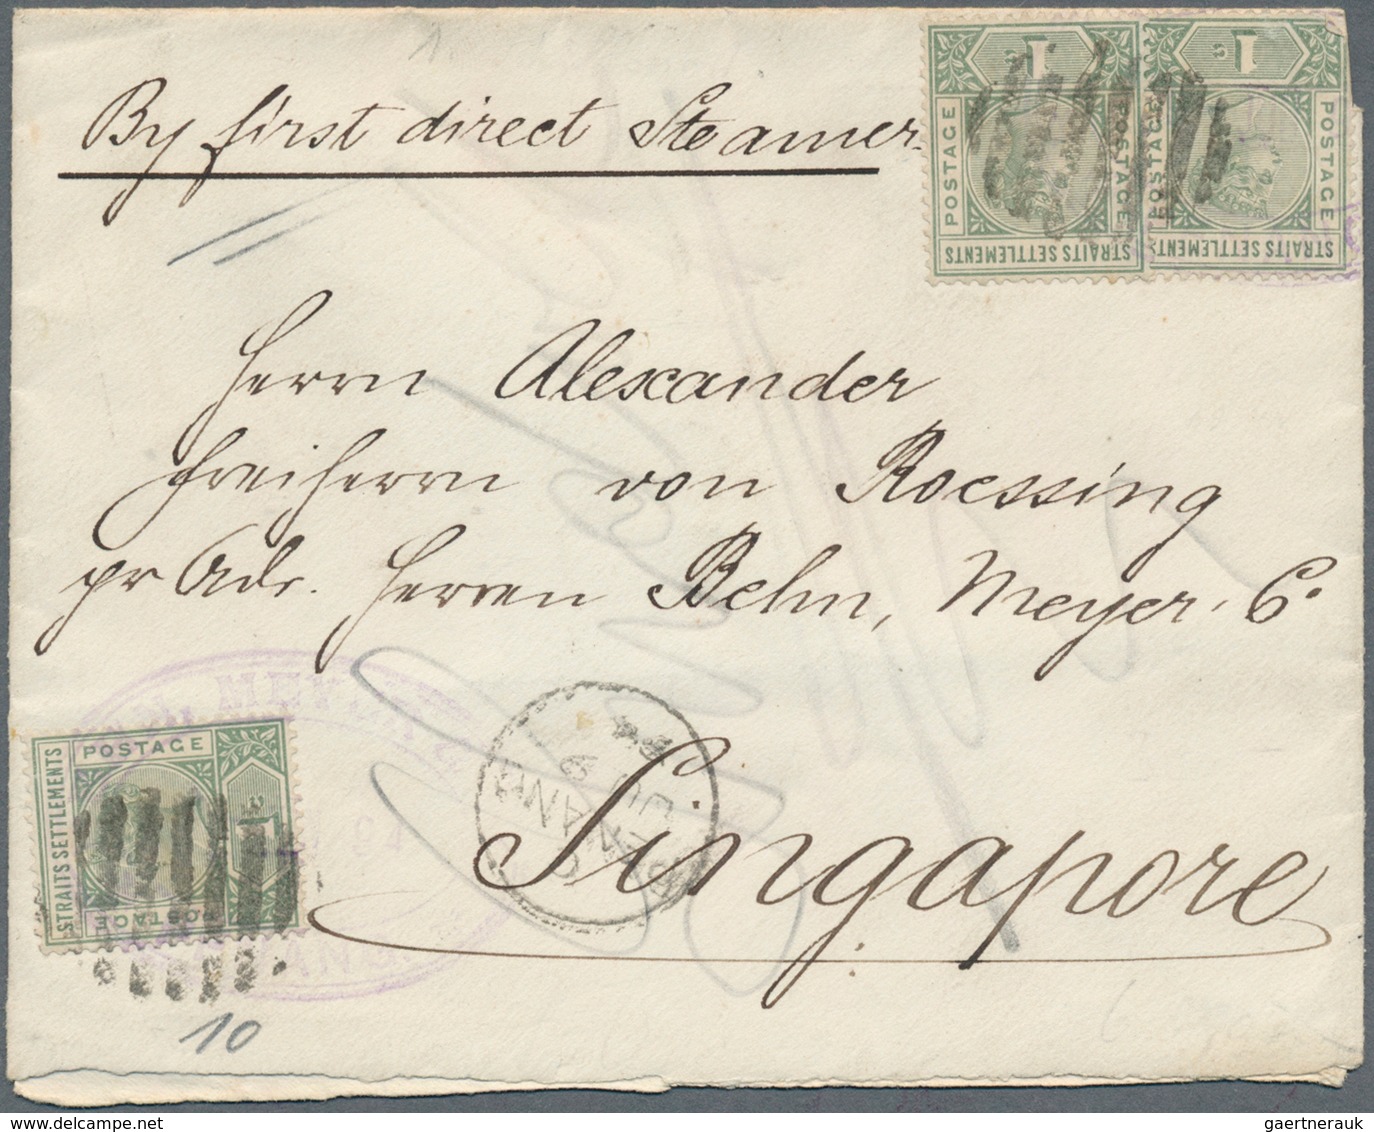 By first direct Steamer.
POSTAGE
1
c
POSTAGE
STRAITS SETTLEMENTS
POSTAGE
1
c
POSTAGE
STRAITS SETTLEMENTS
Herrn Alexander
Freiherrn von Roessing
pr Adr. Herren Behn, Meyer. Co
Singapore
STRAITS SETTLEMENTS
POSTAGE
POSTAGE
1
c
PENANG
JU
9
94
10
gaertnerauk